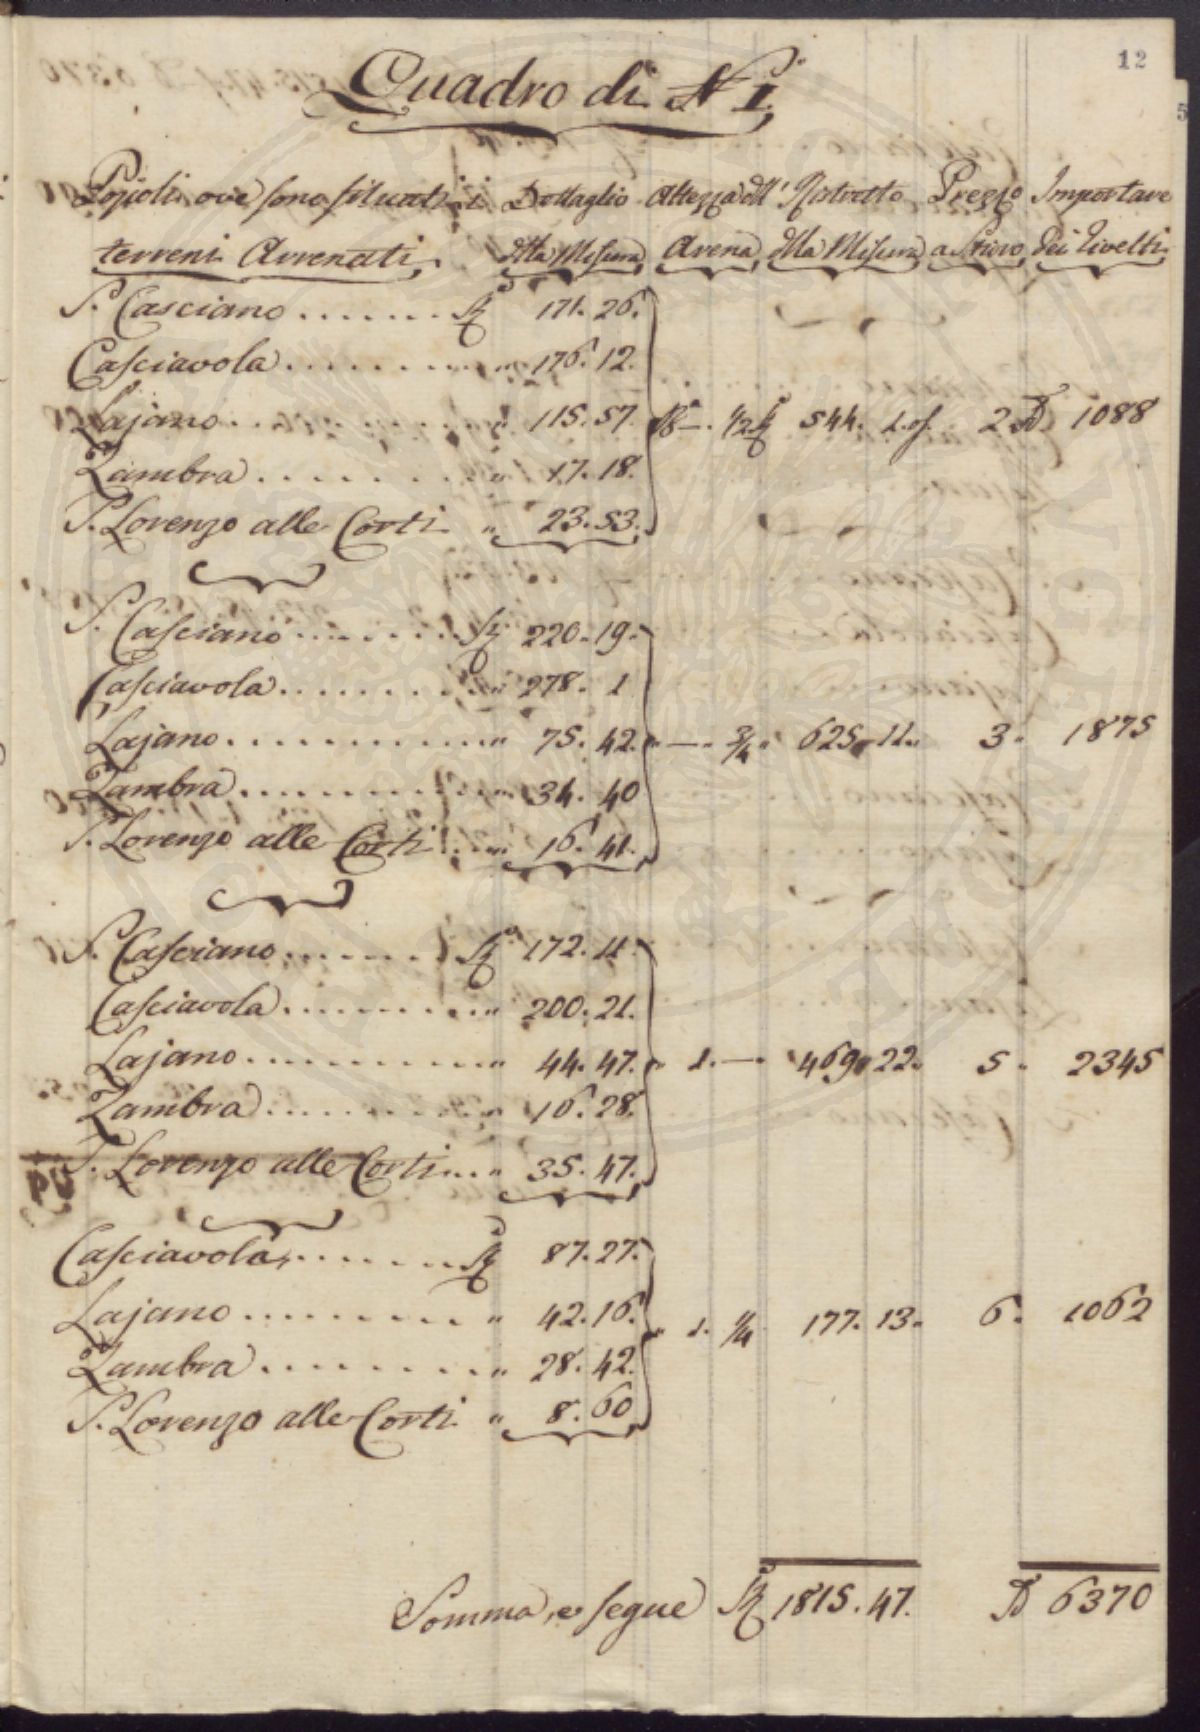 12
Quadro di N° I.
Popoli ove sono situati i Dettaglio Altezza dell' Ristretto Prezzo Importare
terreni Arrenati. della Misura Arena della Misura a Stioro dei Livelli
S. Casciano ....... Sta 171. 26.
Casciavola .......... " 176. 12.
Lajano .......... " 115. 57. Ba —. 1/2 Sta 544. 1. of. 2 D 1088
Zambra .......... " 17. 18.
S. Lorenzo alle Corti " 23. 53.
S. Casciano ....... Sta 220. 19.
Casciavola .......... " 278. 1
Lajano .......... " 75. 42. " —. 3/4 " 625. 11. " 3. " 1875
Zambra .......... " 34. 40
S. Lorenzo alle Corti ... " 16. 41.
S. Casciano ....... Sta 172. 11.
Casciavola .......... " 200. 21.
Lajano .......... " 44. 47. " 1. —. " 469. 22. " 5. " 2345
Zambra .......... " 16. 28.
S. Lorenzo alle Corti ... " 35. 47.
Casciavola ....... Sta 87. 27.
Lajano .......... " 42. 16. " 1. 1/4 177. 13. " 6. 1062
Zambra .......... " 28. 42.
S. Lorenzo alle Corti " 8. 60
Somma, e segue Sta 1815. 47. D 6370